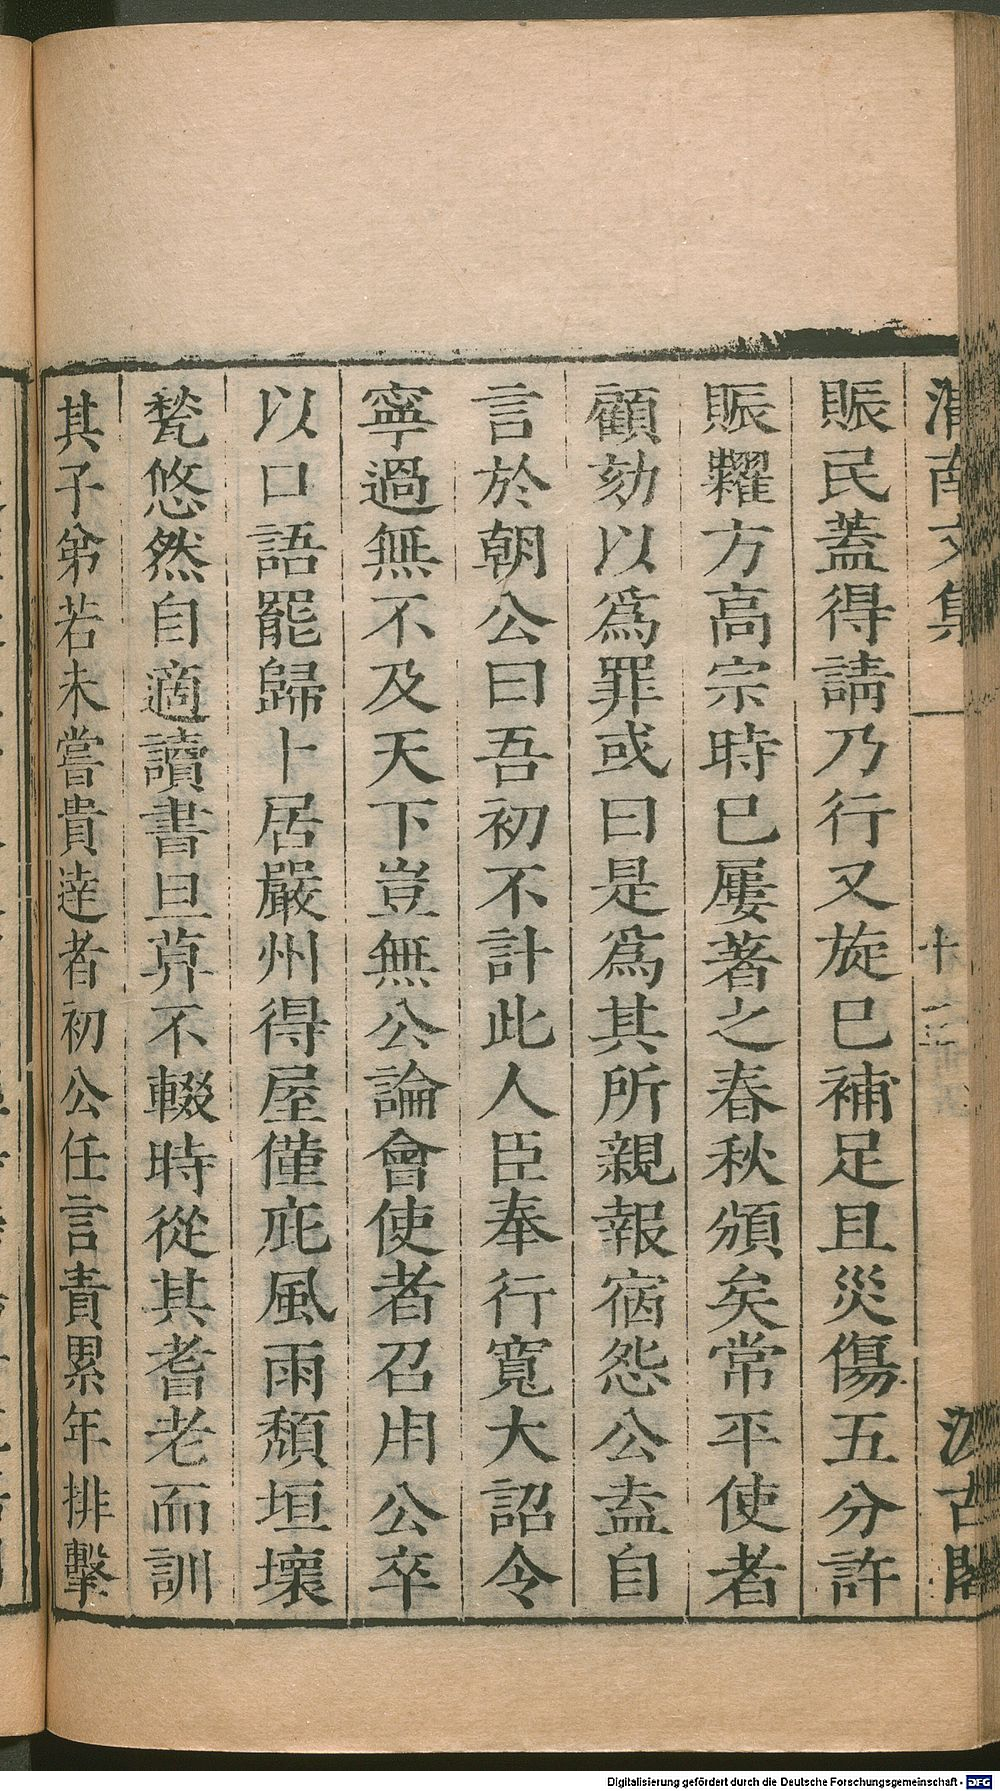 渭南文集
十二
汲古閣
賑民蓋得請乃行又旋巳補足且災傷五分許
賑糶方高宗時巳屢著之春秋頒矣常平使者
顧劾以爲罪或曰是爲其所親報宿怨公盍自
言於朝公曰吾初不計此人臣奉行寬大詔令
寧過無不及天下豈無公論會使者召用公卒
以口語罷歸卜居嚴州得屋僅庇風雨頹垣壞
甃悠然自適讀書旦莫不輟時從其耆老而訓
其子弟若未嘗貴達者初公任言責累年排擊
Digitalisierung gefördert durch die Deutsche Forschungsgemeinschaft - DFG